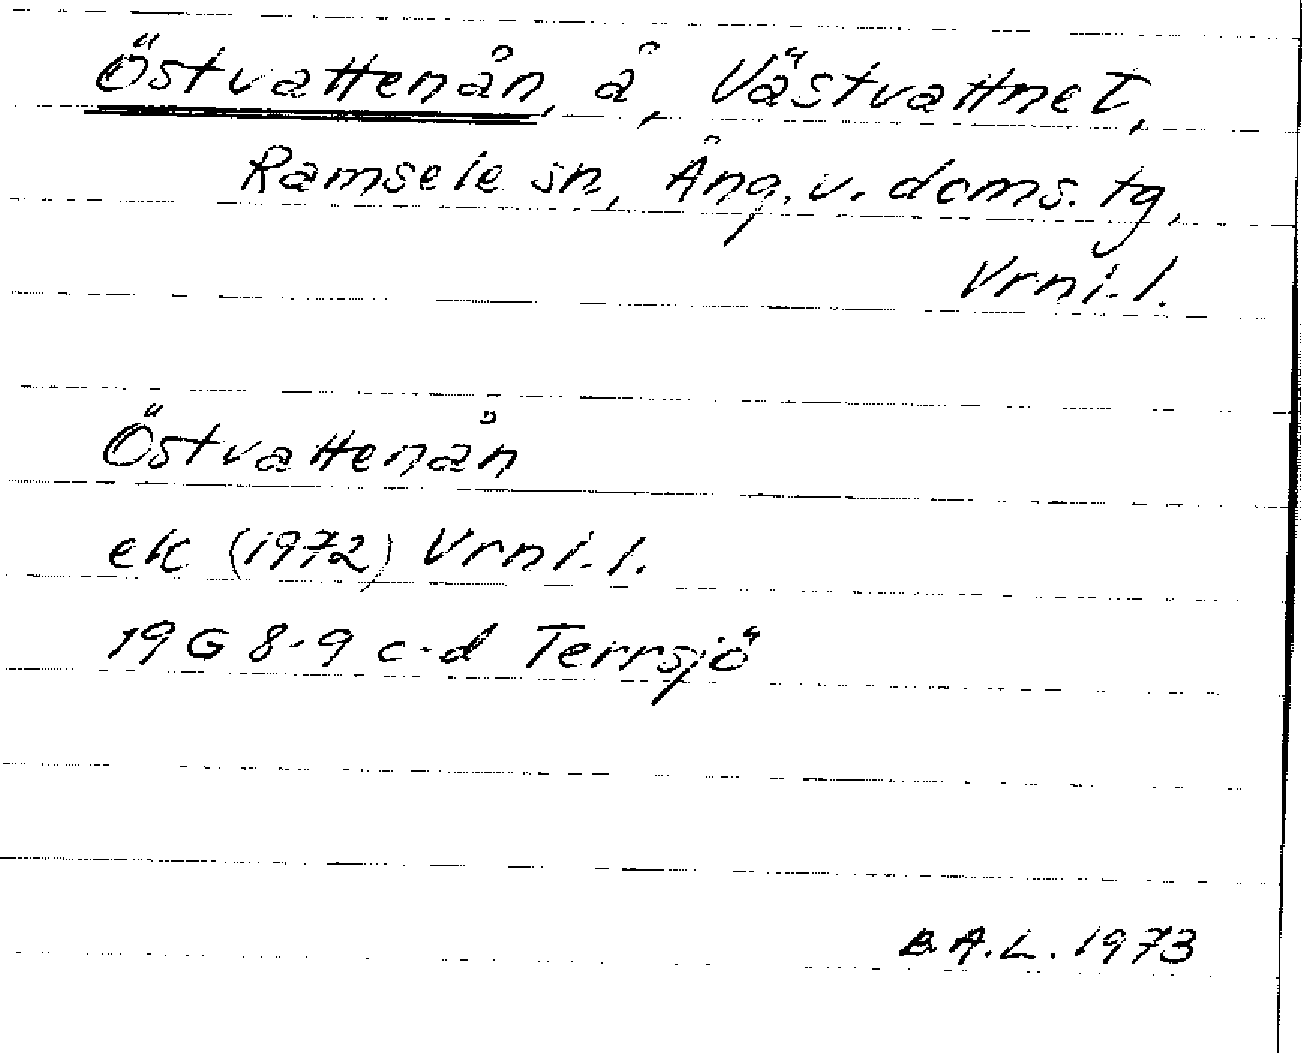 Östvattenån, å, Västvattnet,
Ramsele sn, Ång. v. doms. tg,
Vrnl. l.
Östvattenån
ek (1972) Vrnl. l.
19 G 8-9 c-d Terrsjö
B.A.L. 1973